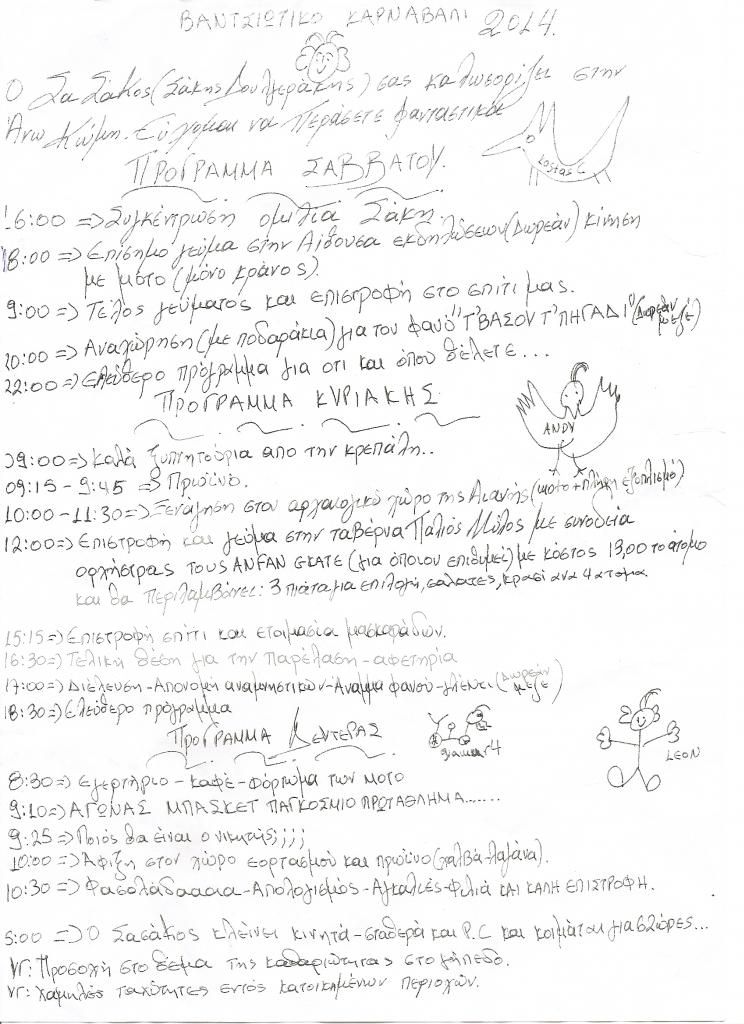 ΒΑΝΤΣΙΩΤΙΚΟ ΚΑΡΝΑΒΑΛΙ 2014.
Ο Σα Σάκος (Σάκης Δουλγεράκης) σας καλωσορίζει στην
Άνω Κώμη. Εύχομαι να Περάσετε φανταστικά
kostas C
ΠΡΟΓΡΑΜΜΑ ΣΑΒΒΑΤΟΥ.
16:00 => Συγκέντρωση ομιλία Σάκη.
18:00 => Επίσημο γεύμα στην Αίθουσα εκδηλώσεων (Δωρεάν) κίνηση
με μοτο (μόνο κράνος).
9:00 => Τέλος γεύματος και επιστροφή στο σπίτι μας.
20:00 => Αναχώρηση (με ποδαράκια) για του φανό "Τ'ΒΑΣΟΥ Τ'ΠΗΓΑΔΙ" (Δωρεάν μεζέ)
22:00 => Ελεύθερο πρόγραμμα για οτι και όπου θέλετε...
ΠΡΟΓΡΑΜΜΑ ΚΥΡΙΑΚΗΣ
ANDY
09:00 => Καλά ξυπνητούρια απο την κρεπάλη..
09:15 - 9:45 => Πρωϊνό.
10:00 - 11:30 => Ξενάγηση στον αρχαιολογικό χώρο της Αιανής (μοτο + πλήρη εξοπλισμό)
12:00 => Επιστροφή και γεύμα στην ταβέρνα Παλιός Μύλος με συνοδεία
ορχήστρας τους ANFAN GKATE (για όποιον επιθυμεί) με κόστος 13,00 το άτομο
και θα περιλαμβάνει: 3 πιάτα για επιλογή, σαλάτες, κρασί ανα 4 ατομα.
15:15 => Επιστροφή σπίτι και ετοιμασία μασκαράδων.
16:30 => Τελική θέση για την παρέλαση - αφετηρία
17:00 => Διέλευση - Απονομή αναμνηστικών - Άναμμα φανού - γλέντι (Δωρεάν μεζέ)
18:30 => Ελεύθερο πρόγραμμα
ΠΡΟΓΡΑΜΜΑ ΔΕΥΤΕΡΑΣ
LEON
8:30 => Εγερτήριο - καφέ - φόρτωμα των μοτο
9:10 => ΑΓΩΝΑΣ ΜΠΑΣΚΕΤ ΠΑΓΚΟΣΜΙΟ ΠΡΩΤΑΘΛΗΜΑ......
9:25 => Ποιός θα είναι ο νικητής;;;;
10:00 => Άφιξη στον χώρο εορτασμού και πρωϊνο (χαλβά-λαγάνα).
10:30 => Φασολάδααααα - Απολογισμός - Αγκαλιές - Φιλιά ΚΑΙ ΚΑΛΗ ΕΠΙΣΤΡΟΦΗ.
5:00 => Ο Σασάκος κλείνει κινητά - σταθερά και P.C και κοιμάται για 62 ώρες...
ΥΓ: Προσοχή στο θέμα της καθαριότητας στο γήπεδο.
ΥΓ: Χαμηλές ταχύτητες εντός κατοικημένων περιοχών.